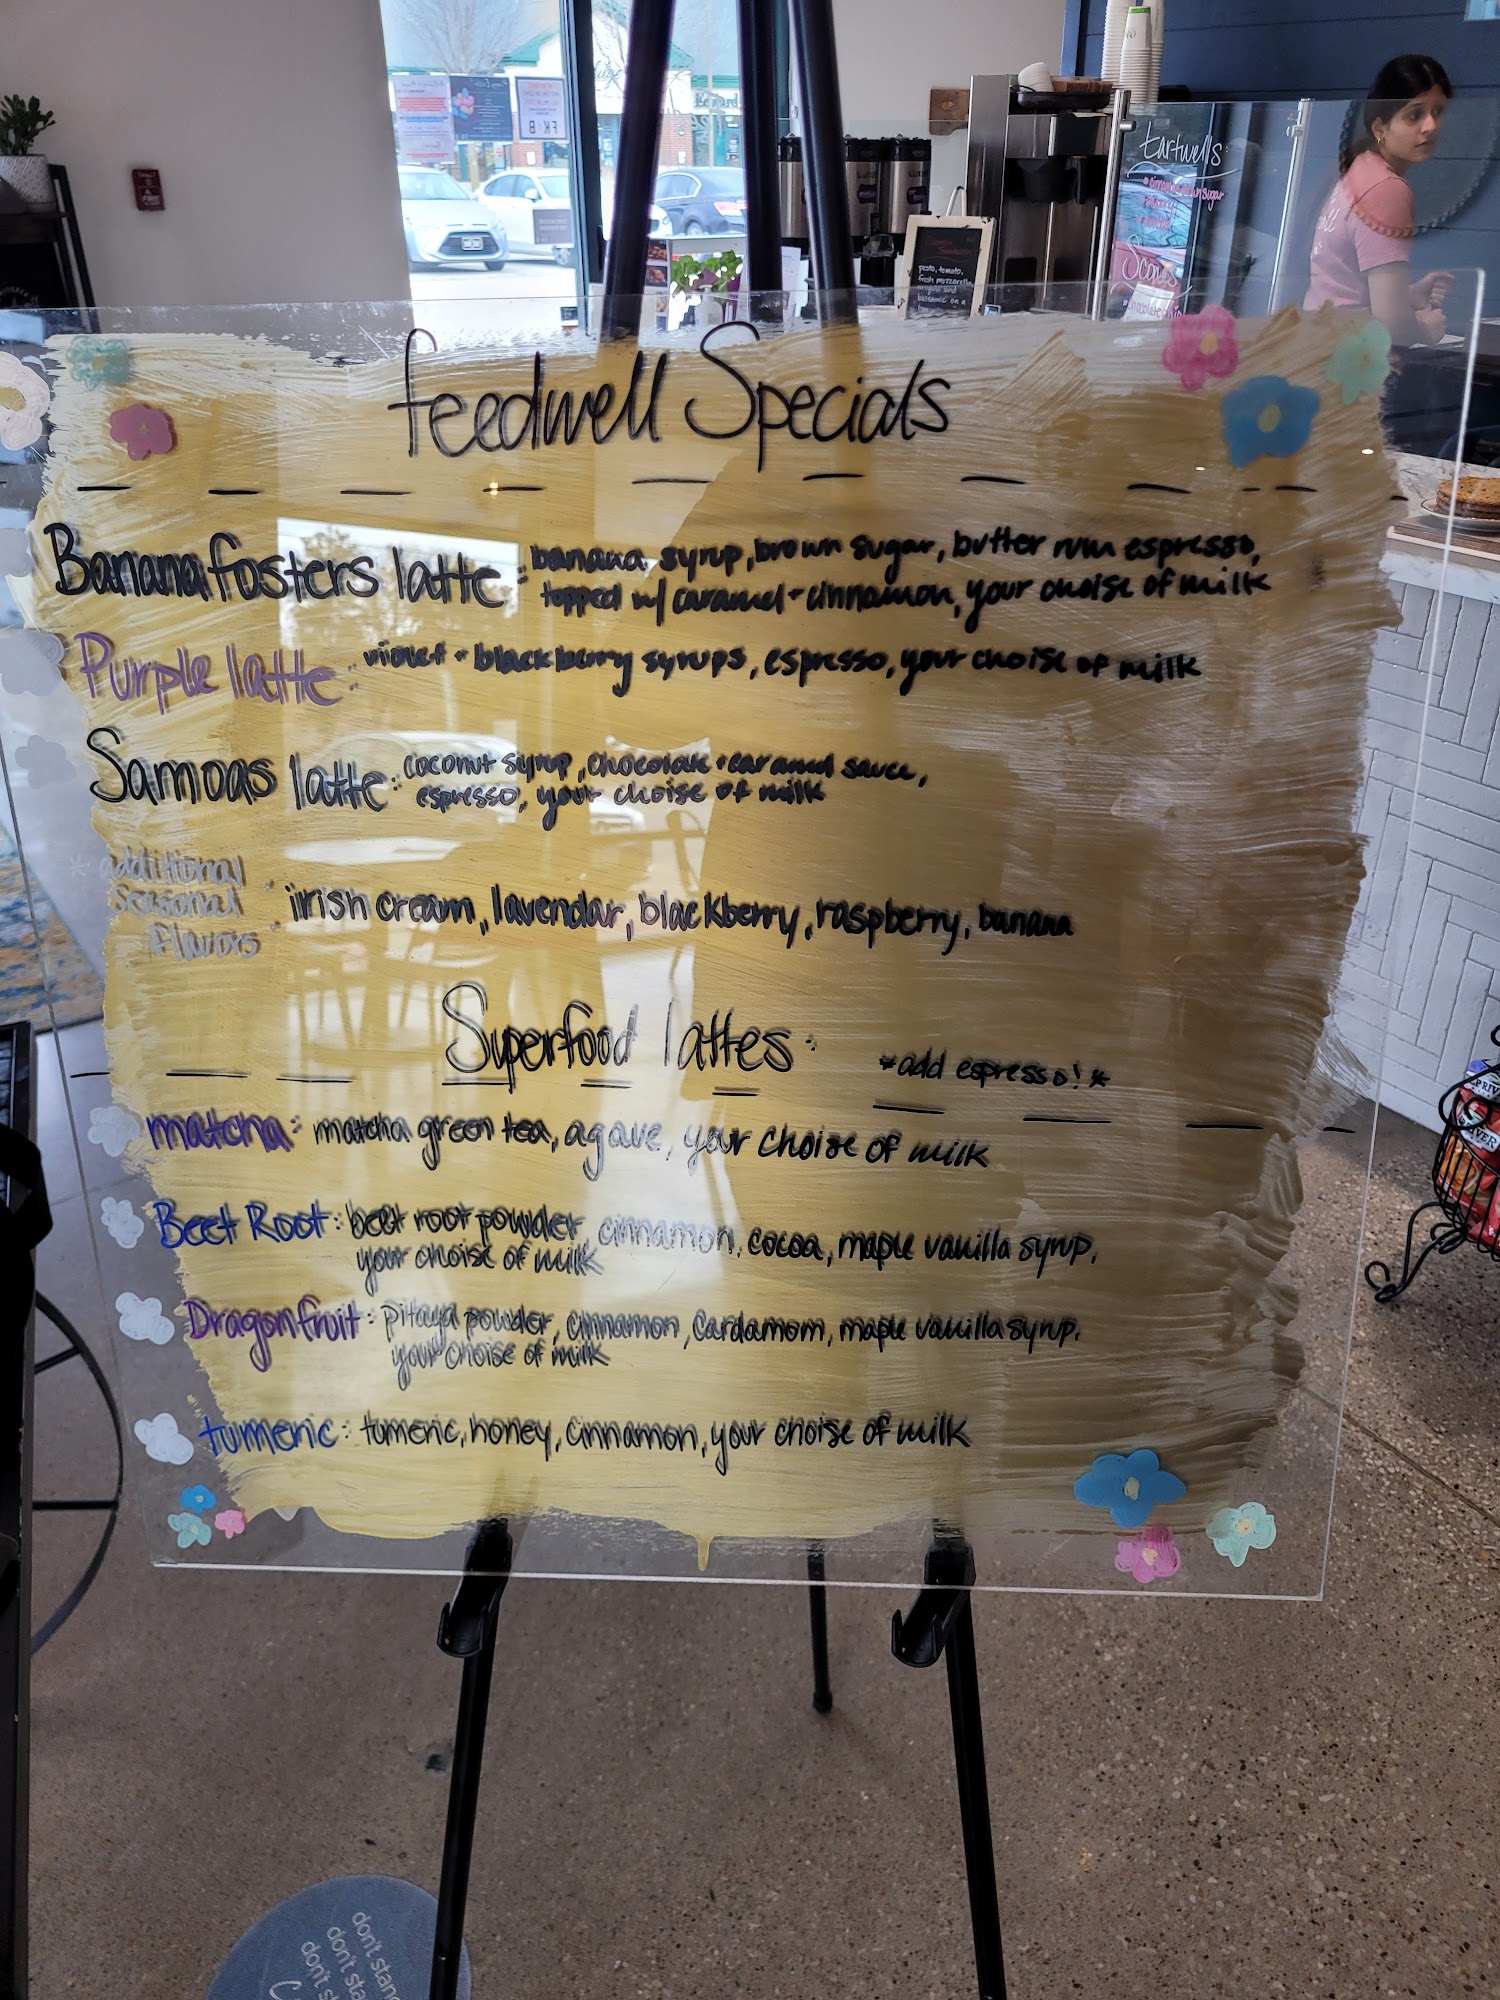 feedwell Specials
Banana fosters latte: banana syrup, brown sugar, butter rum espresso,
topped w/ caramel + cinnamon, your choise of milk
Purple latte: violet + blackberry syrups, espresso, your choise of milk
Samoas latte: coconut syrup, chocolate + caramel sauce,
espresso, your choise of milk
* additional
seasonal
flavors : irish cream, lavendar, blackberry, raspberry, banana
Superfood lattes: *add espresso! *
matcha: matcha green tea, agave, your choise of milk
Beet Root: beet root powder, cinnamon, cocoa, maple vanilla syrup,
your choise of milk
Dragonfruit: pitaya powder, cinnamon, cardamom, maple vanilla syrup,
your choise of milk
tumeric: tumeric, honey, cinnamon, your choise of milk
tartwells:
Scones
pesto, tomato,
fresh mozzarella,
balsamic on a
don't stand
don't
don't